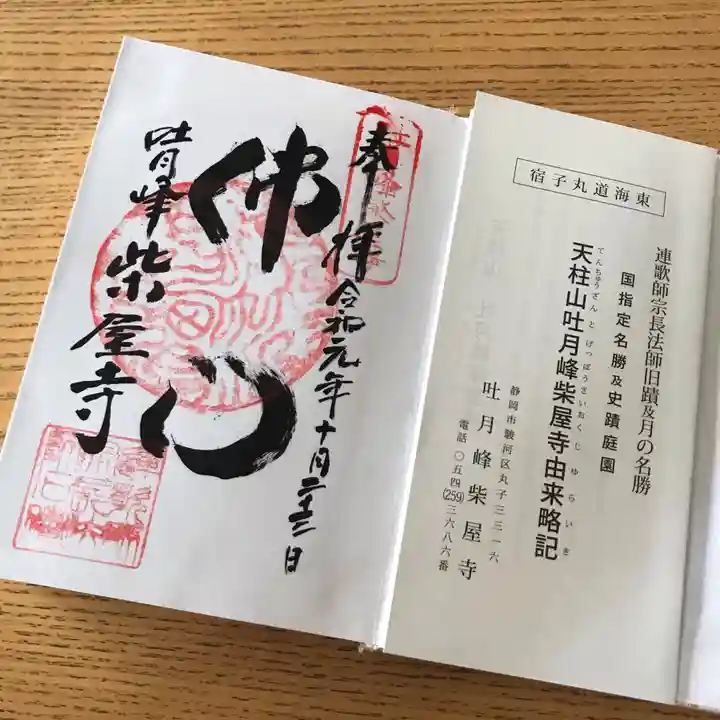 奉拝 令和元年十月二十三日
佛心
吐月峰 柴屋寺
東海道丸子宿
連歌師宗長法師旧蹟及月の名勝
国指定名勝及史蹟庭園
てんちゅうざんとげっぽうさいおくじゆらいき
天柱山吐月峰柴屋寺由来略記
静岡市駿河区丸子三三一六
吐月峰柴屋寺
電話〇五四(259)三六八六番